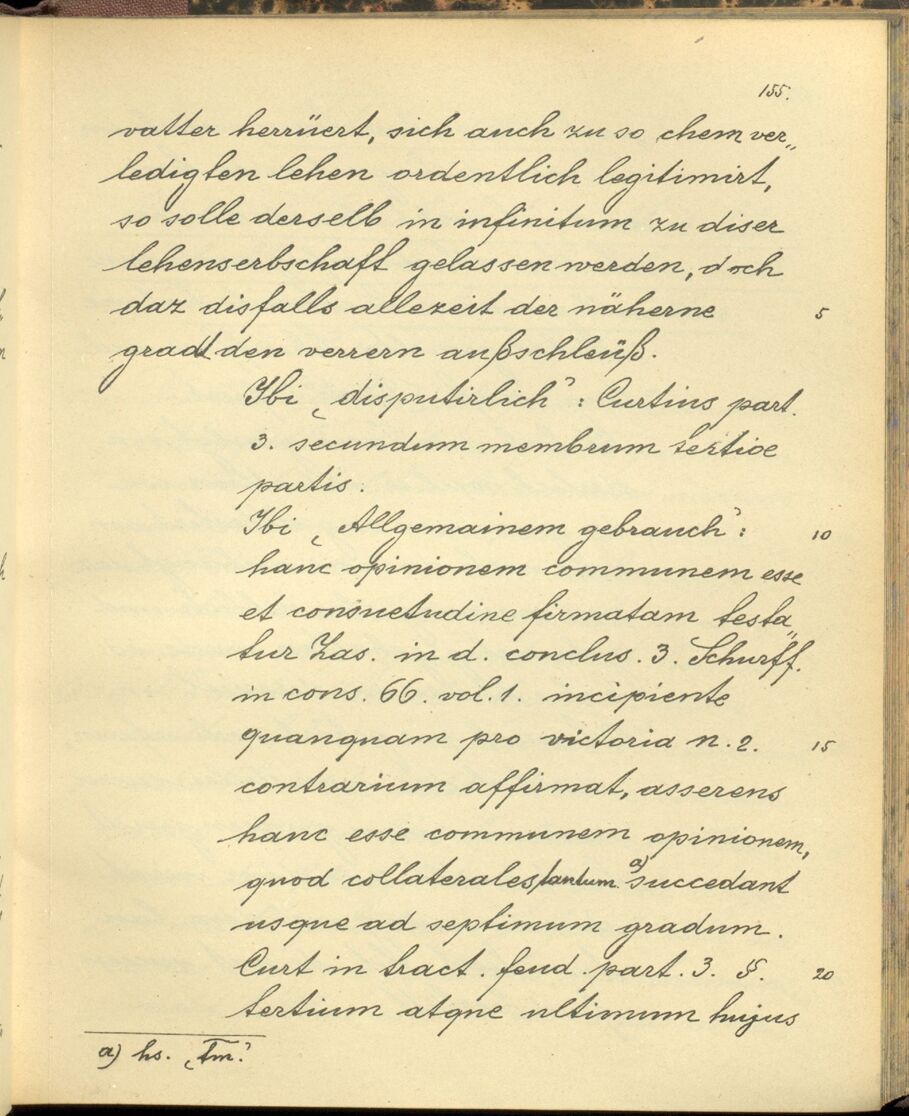 155.
vatter herrüert, sich auch zu so chem ver„
ledigten lehen ordentlich legitimirt,
so solle derselb in infinitum zu diser
lehenserbschaft gelassen werden, doch
daz disfalls allezeit der näherne 5
gradt den verrern außschleüß.
Ibi ‚disputirlich’: Curtius part.
3. secundum membrum tertioe
partis.
Ibi ‚Allgemainem gebrauch’: 10
hanc opinionem communem esse
et consuetudine firmatam testa„
tur Zas. in d. conclus. 3. Schurff.
in cons. 66. vol. 1. incipiente
quanquam pro victoria n. 2. 15
contrarium affirmat, asserens
hanc esse communem opinionem,
quod collaterales tantum a) succedant
usque ad septimum gradum.
Curt in tract. feud. part. 3. §. 20
tertium atque ultimum hujus
a) hs. ‚Tm.’